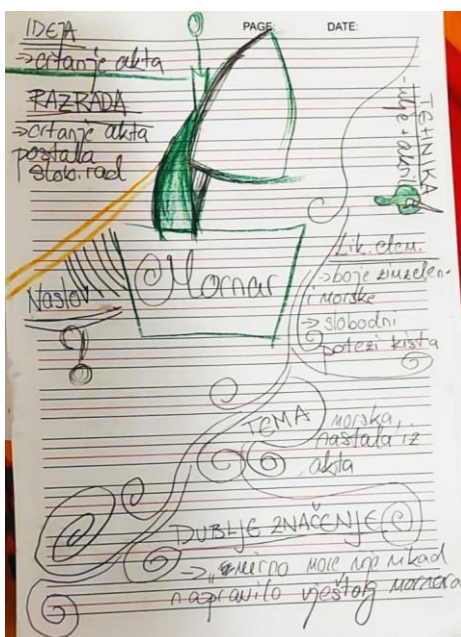 PAGE: DATE:
IDEJA
→ crtanje akta
RAZRADA
→ crtanje akta
postala
slob. rad
TEHNIKA
- ulje + akril
Lik. elem.
→ boje zimzelen
i morske
→ slobodni
potezi kista
Naslov
?
Mornar
TEMA
morska,
nastala iz
akta
DUBLJE ZNAČENJE
→ "mirno more nije nikad
napravilo vještog mornara